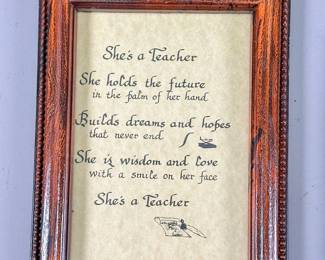 She's a Teacher
She holds the future
in the palm of her hand
Builds dreams and hopes
that never end
She is wisdom and love
with a smile on her face
She's a Teacher